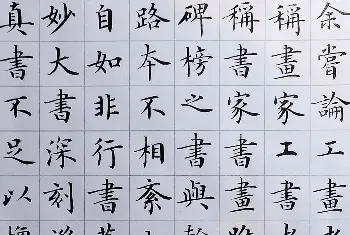 余嘗論工書
稱畫家工書
稱書家書畫
碑榜之書與
路本不相紊
自如非行書
妙大書深刻
真書不足以